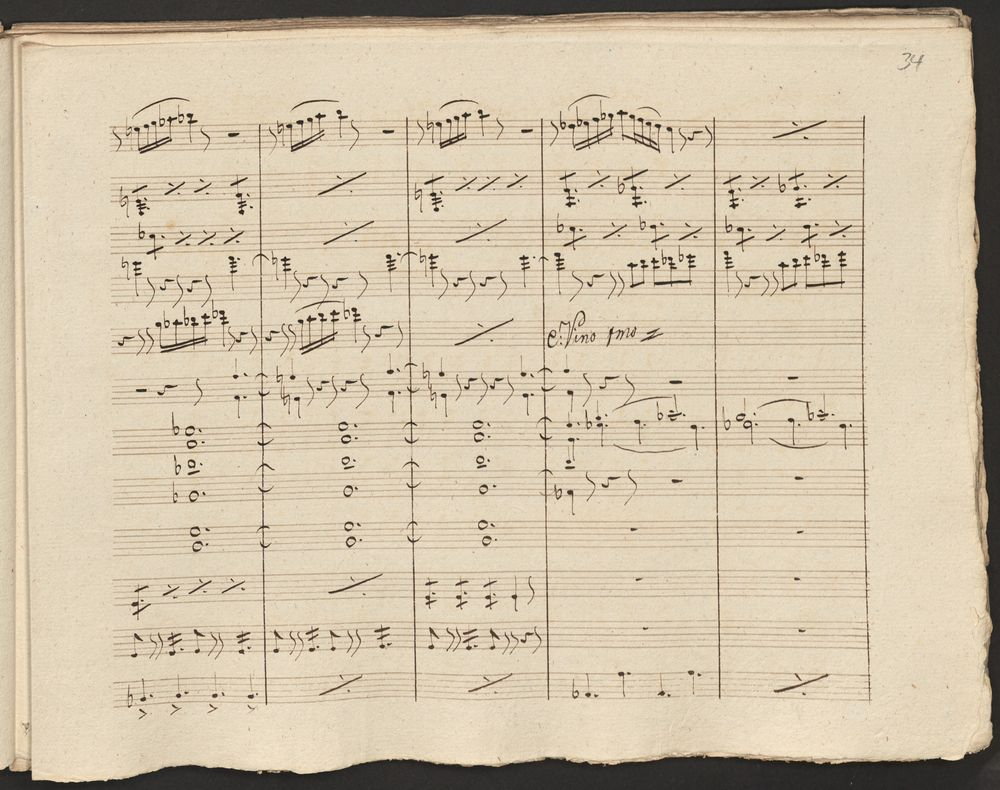 34
C: Vino 1mo